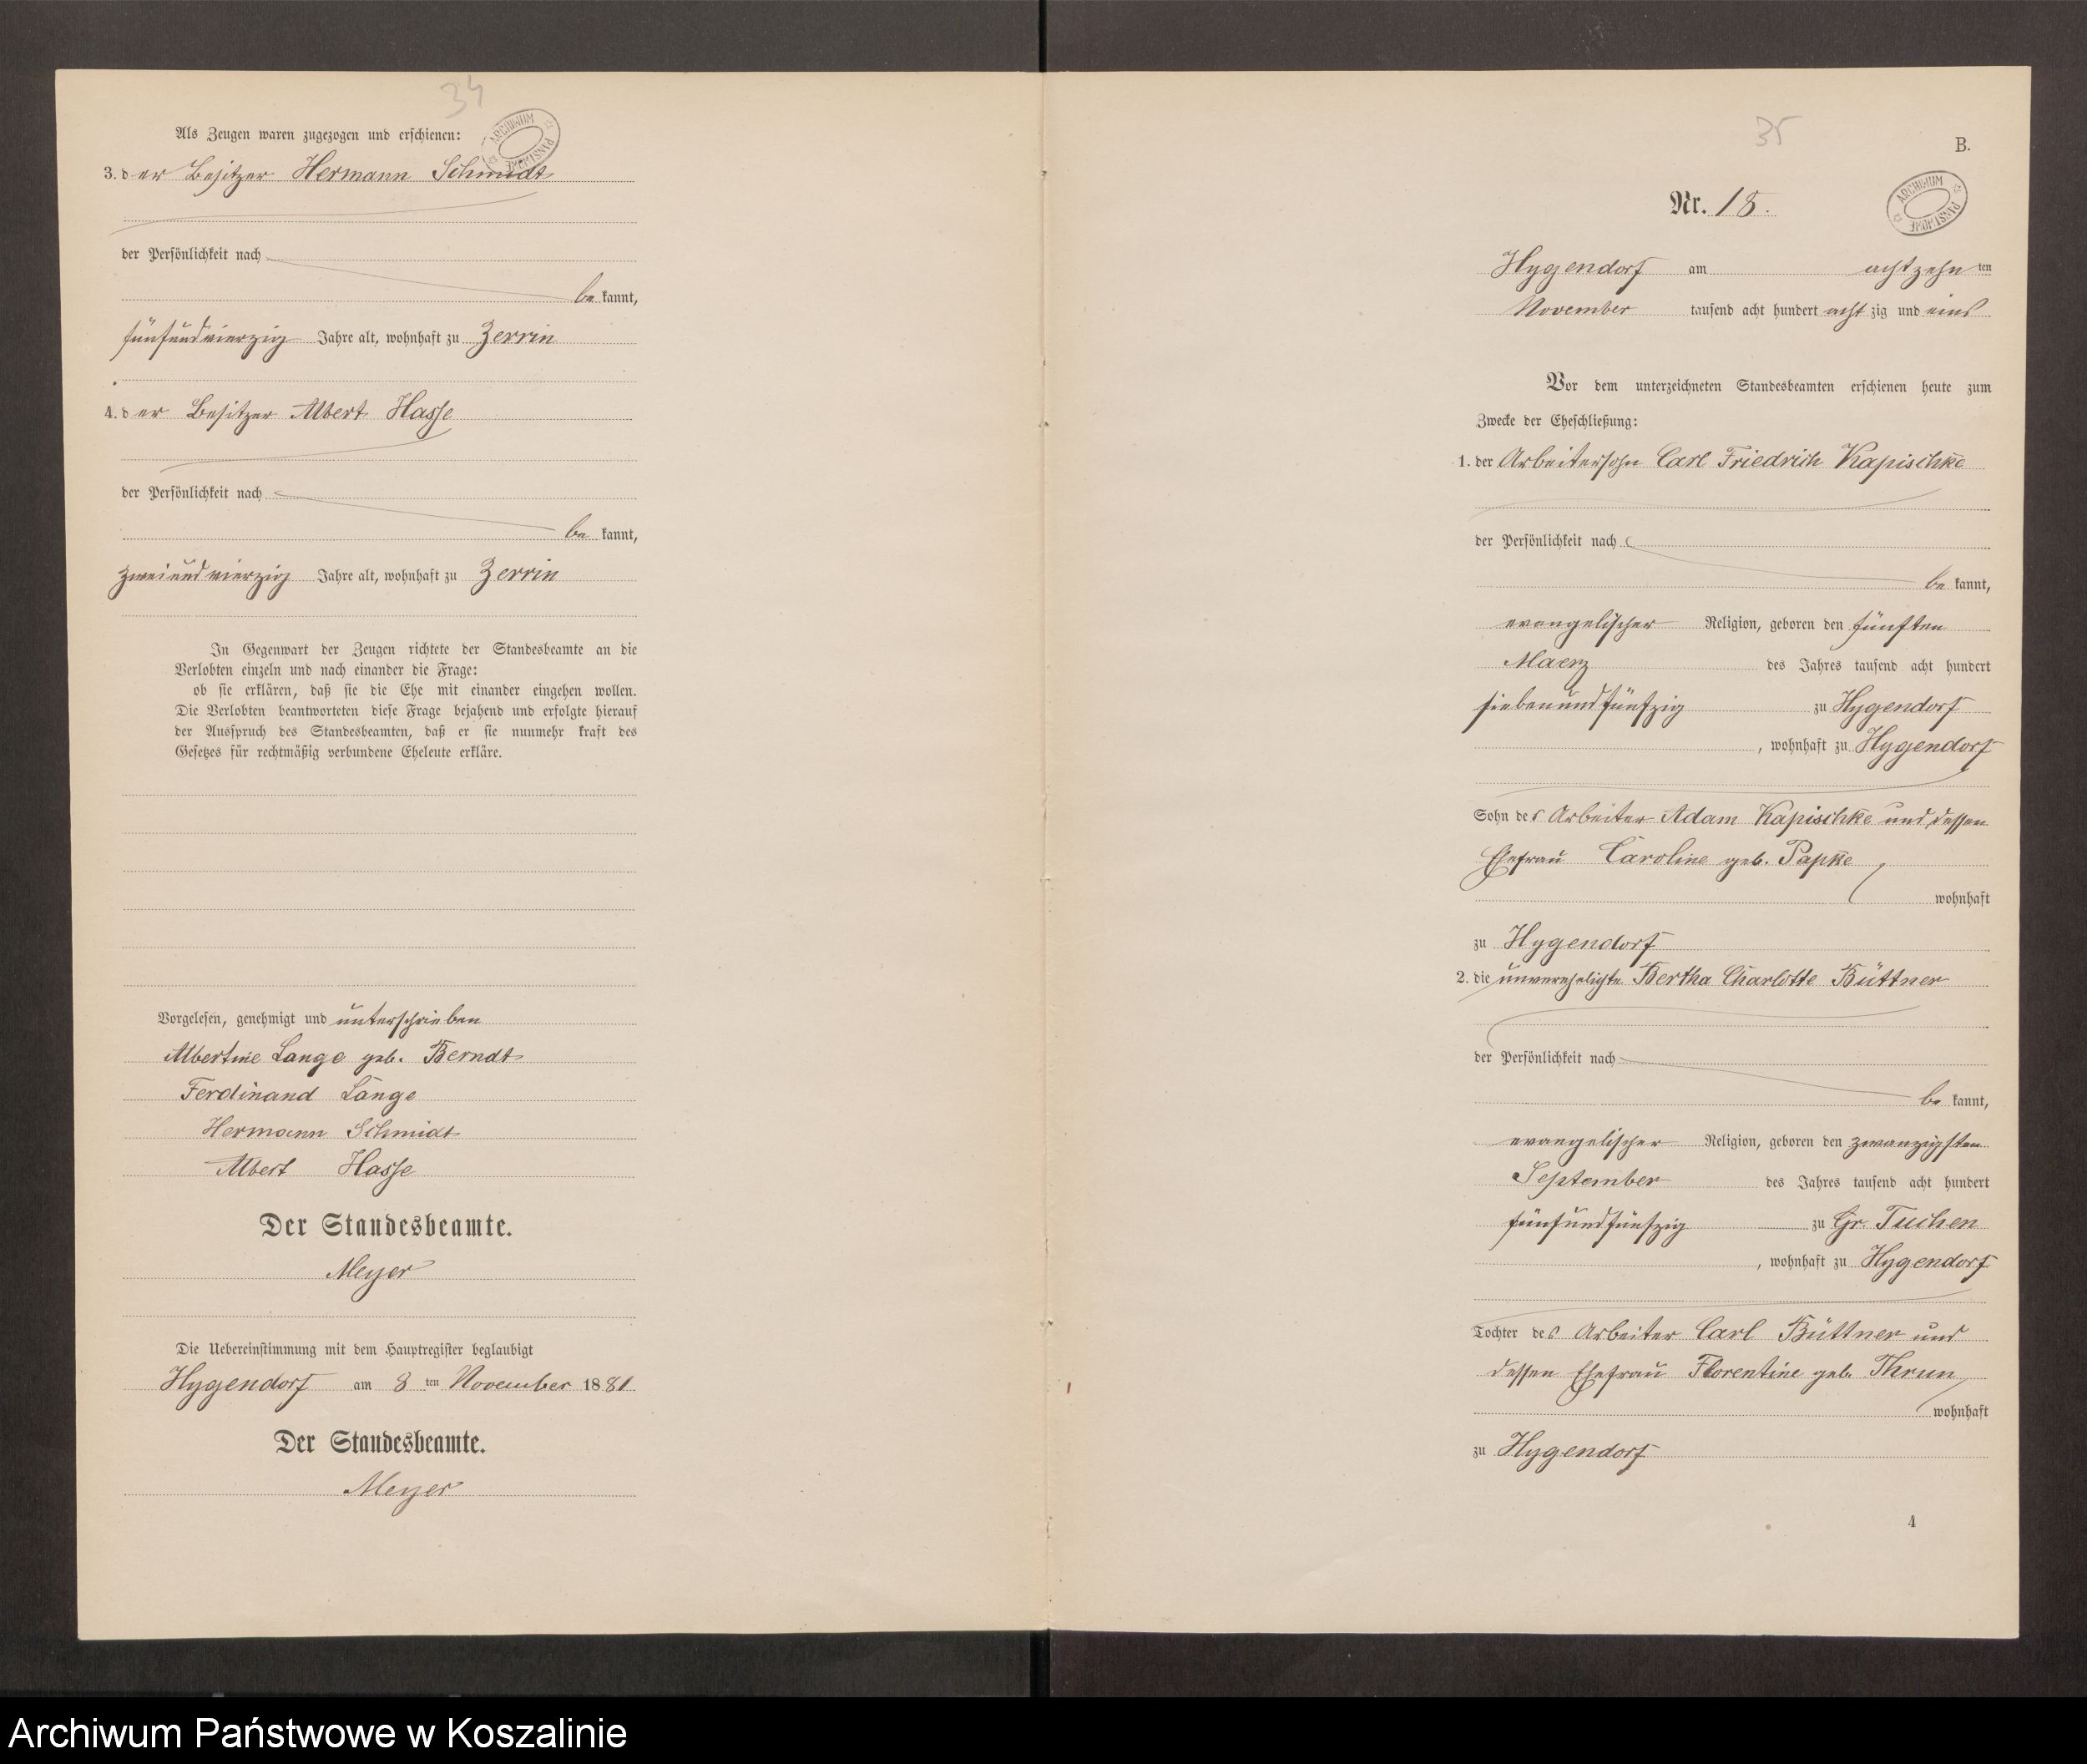 34
Als Zeugen waren zugezogen und erschienen:
ARCHIWUM PAŃSTWOWE
3. der Besitzer Hermann Schmidt
der Persönlichkeit nach
be kannt,
fünfundvierzig Jahre alt, wohnhaft zu Zerrin
4. der Besitzer Albert Hasse
der Persönlichkeit nach
be kannt,
zweiundvierzig Jahre alt, wohnhaft zu Zerrin
In Gegenwart der Zeugen richtete der Standesbeamte an die
Verlobten einzeln und nach einander die Frage:
ob sie erklären, daß sie die Ehe mit einander eingehen wollen.
Die Verlobten beantworteten diese Frage bejahend und erfolgte hierauf
der Ausspruch des Standesbeamten, daß er sie nunmehr kraft des
Gesetzes für rechtmäßig verbundene Eheleute erkläre.
Vorgelesen, genehmigt und unterschrieben
Albertine Lange geb. Berndt
Ferdinand Lange
Hermann Schmidt
Albert Hasse
Der Standesbeamte.
Meyer
Die Uebereinstimmung mit dem Hauptregister beglaubigt
Hygendorf am 8 ten November 1881.
Der Standesbeamte.
Meyer
35
B.
Nr. 18.
ARCHIWUM PAŃSTWOWE
Hygendorf am achtzehn ten
November tausend acht hundert acht zig und eins
Vor dem unterzeichneten Standesbeamten erschienen heute zum
Zwecke der Eheschließung:
1. der Arbeitersohn Carl Friedrich Kapischke
der Persönlichkeit nach
be kannt,
evangelischer Religion, geboren den fünften
Maerz des Jahres tausend acht hundert
siebenundfünfzig zu Hygendorf
, wohnhaft zu Hygendorf
Sohn des Arbeiter Adam Kapischke und dessen
Ehefrau Caroline geb. Papke
wohnhaft
zu Hygendorf
2. die unverehelichte Bertha Charlotte Büttner
der Persönlichkeit nach
be kannt,
evangelischer Religion, geboren den zwanzigsten
September des Jahres tausend acht hundert
fünfundfünfzig zu Gr. Tuchen
, wohnhaft zu Hygendorf
Tochter des Arbeiter Carl Büttner und
dessen Ehefrau Florentine geb. Thrun
wohnhaft
zu Hygendorf
4
Archiwum Państwowe w Koszalinie